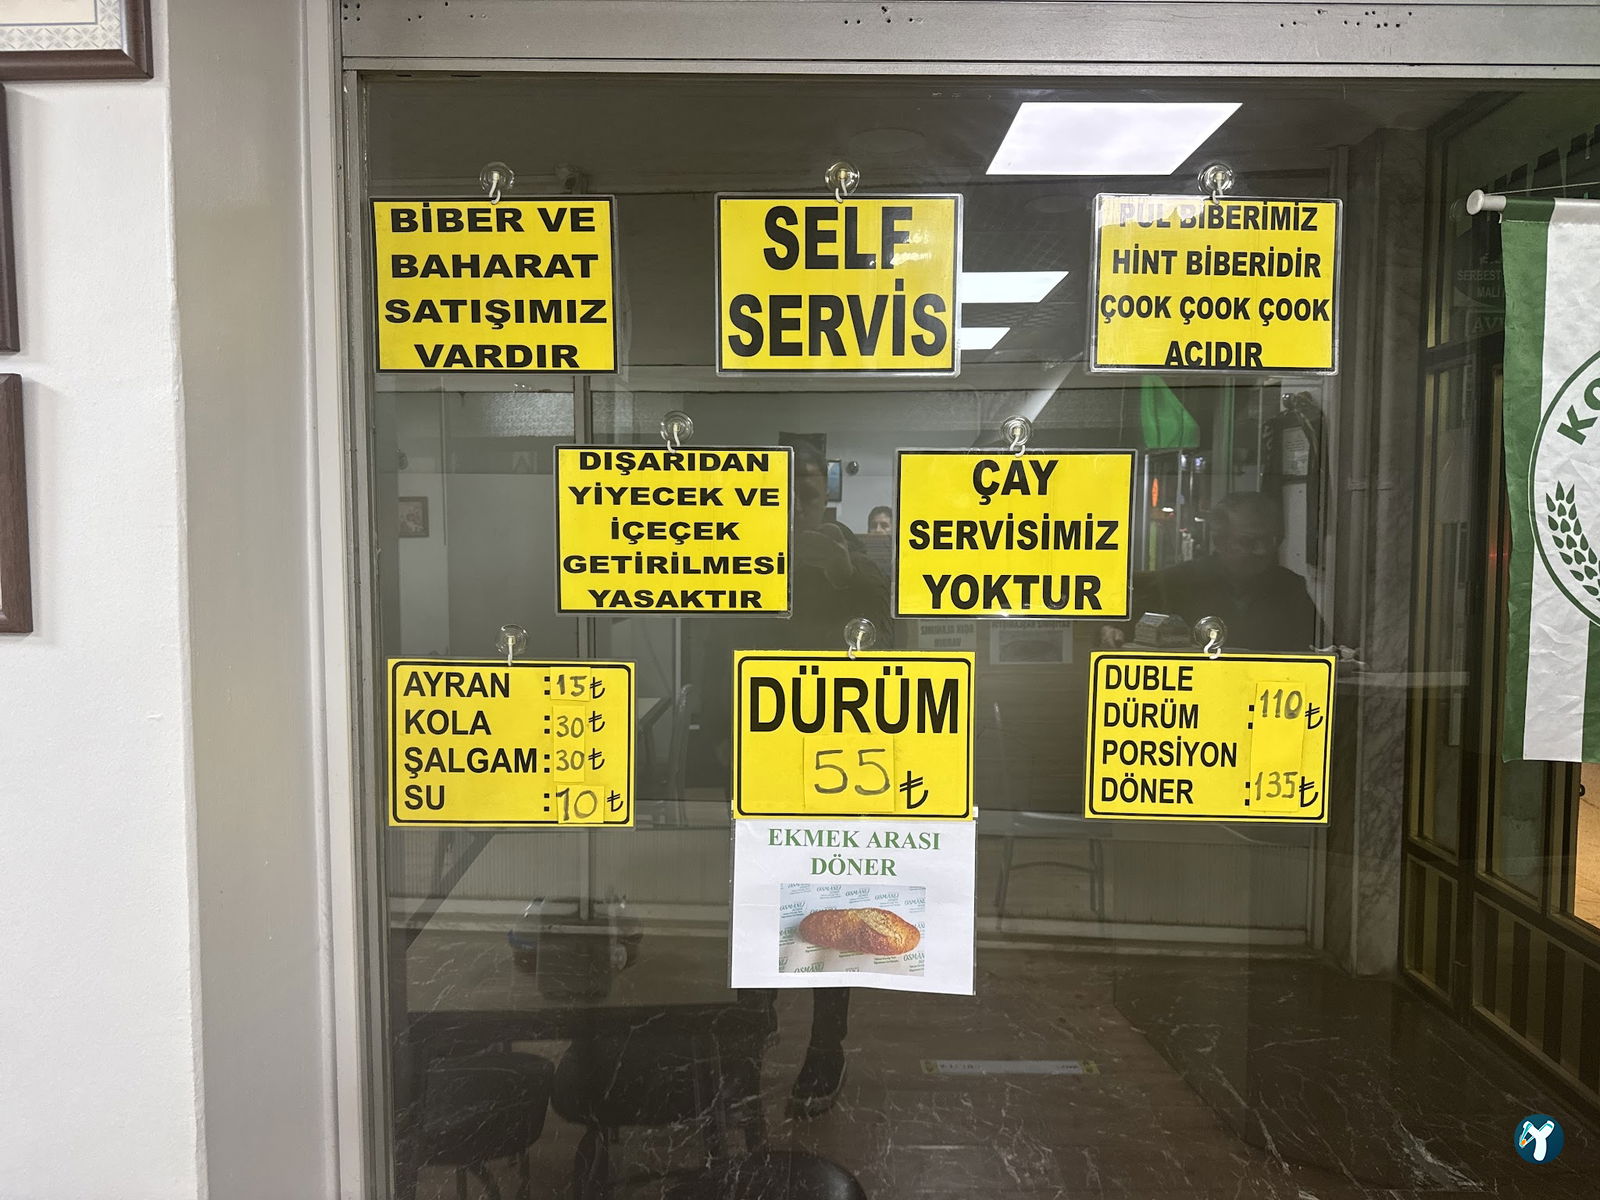 BİBER VE
BAHARAT
SATIŞIMIZ
VARDIR
SELF
SERVİS
PUL BİBERİMİZ
HİNT BİBERİDİR
ÇOOK ÇOOK ÇOOK
ACIDIR
DIŞARIDAN
YİYECEK VE
İÇEÇEK
GETİRİLMESİ
YASAKTIR
ÇAY
SERVİSİMİZ
YOKTUR
AYRAN :15₺
KOLA :30₺
ŞALGAM:30₺
SU :10₺
DÜRÜM
55₺
EKMEK ARASI
DÖNER
DUBLE
DÜRÜM :110₺
PORSİYON
DÖNER :135₺
SERBEST
MALİ
KO
OSMANLI